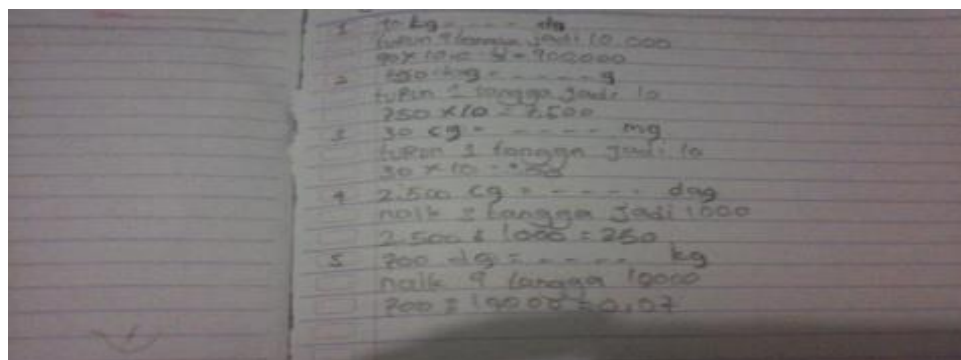 1 kg = - - - - dg
turun 4 tangga jadi 10.000
90 x 10.000 = 900.000
2 250 dag = - - - - - g
turun 1 tangga jadi 10
250 x 10 = 2.500
3 30 cg = - - - - - mg
turun 1 tangga jadi 10
30 x 10 =
4 2.500 cg = - - - - dag
naik 3 tangga jadi 1000
2.500 : 1000 = 250
5 700 dg = - - - - kg
naik 4 tangga 10000
700 : 10000 = 0,07